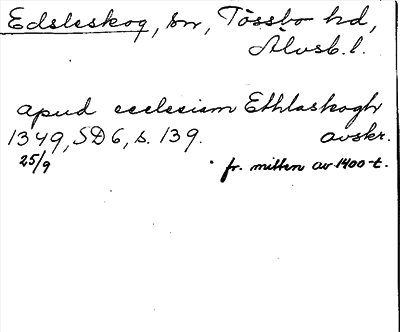 Edsleskog, sn, Tössbo hd,
Älvsb. l.
apud ecclesiam Ethlaskogh
1349, SD 6, s. 139. avskr.
25/9 fr. mitten av 1400-t.